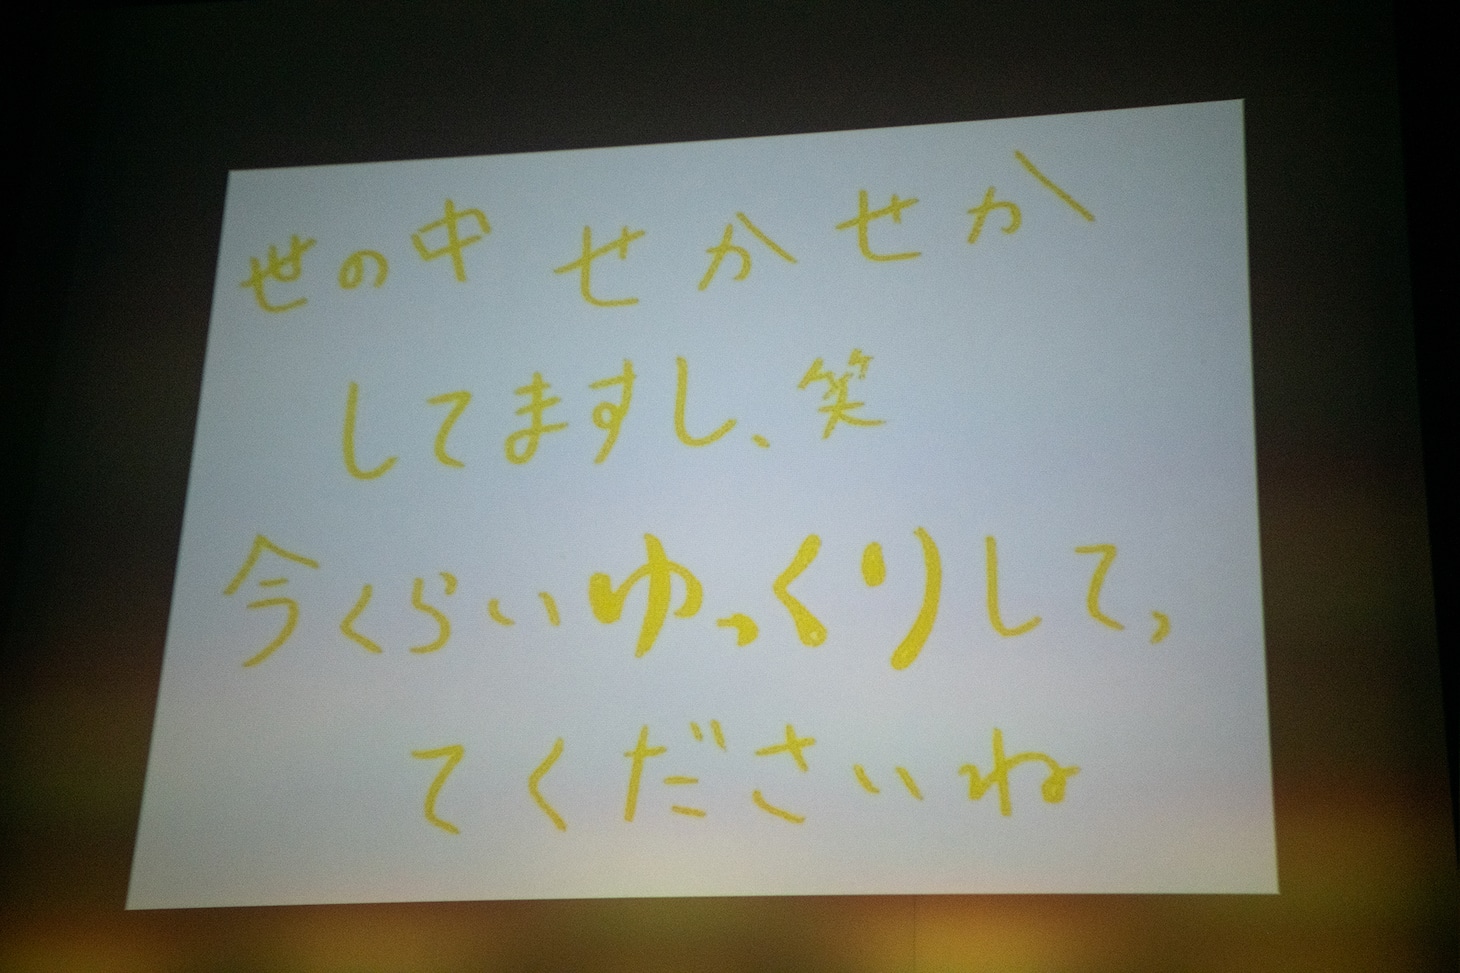 世の中 せかせか
してますし、笑
今くらいゆっくりして、
てくださいね